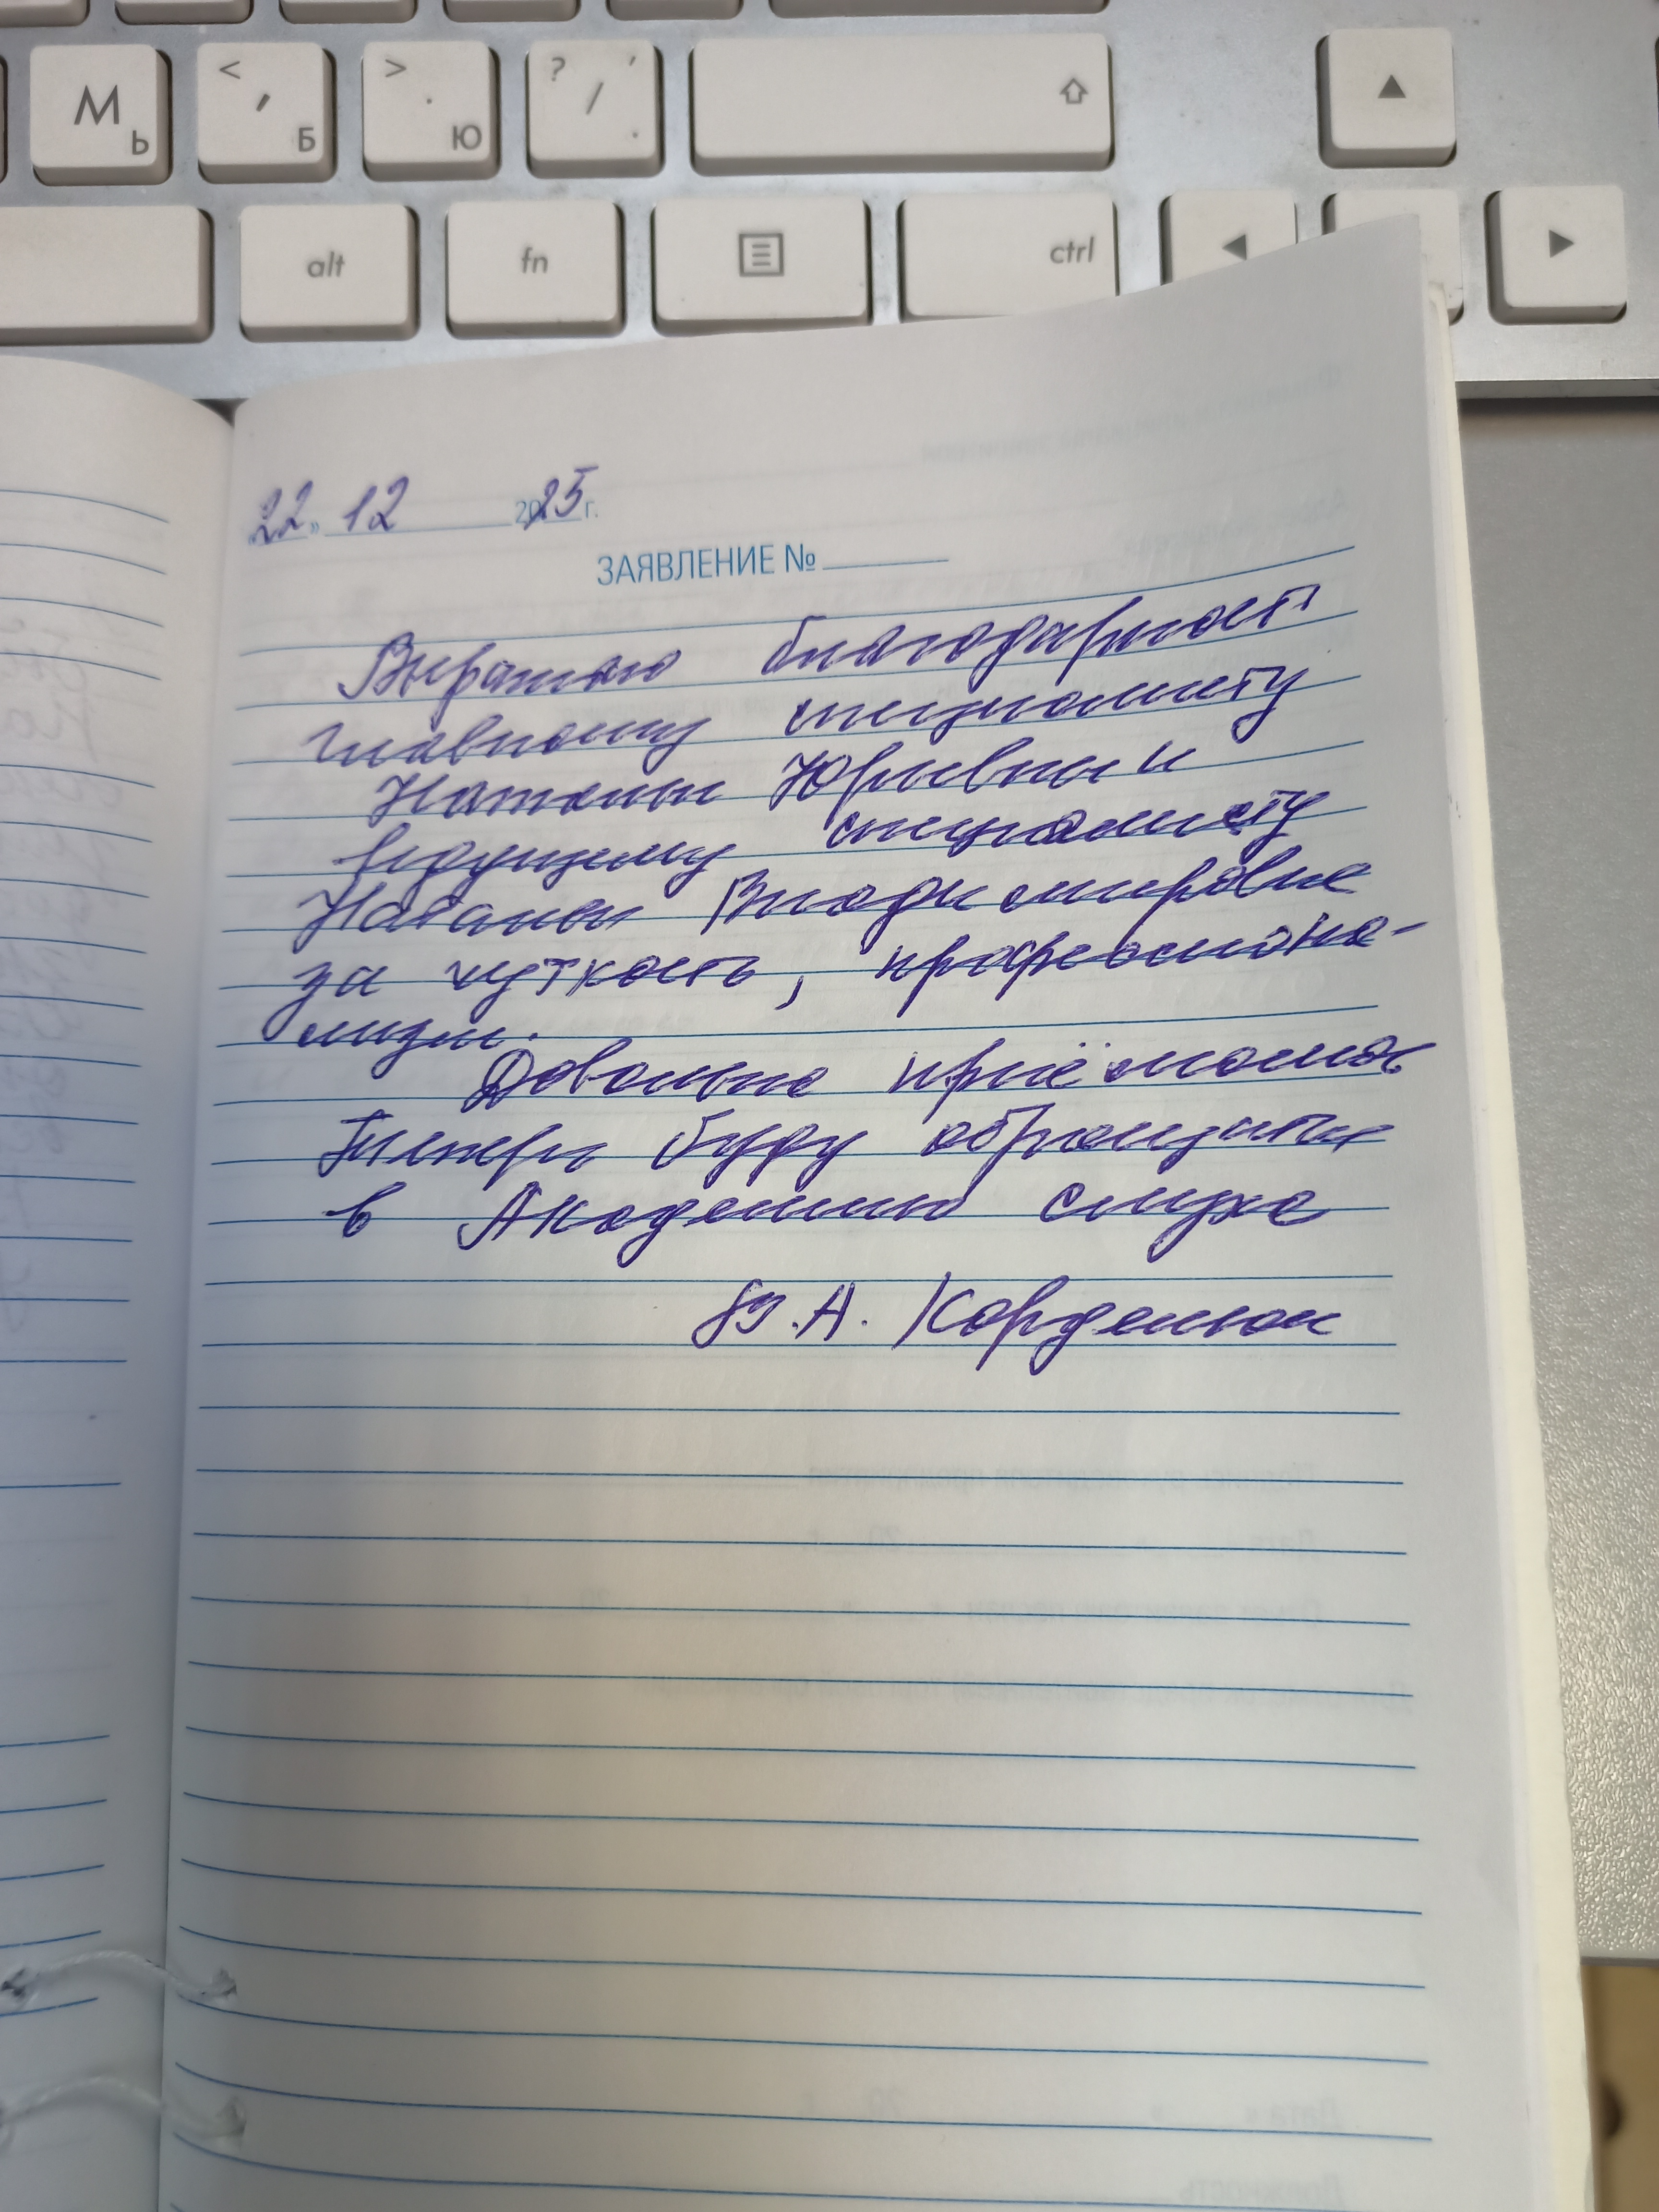 М Ь < , Б > . Ю ? / ' .
alt fn ctrl
22 » 12 2025 г.
ЗАЯВЛЕНИЕ №
Выражаю благодарность
главному специалисту
Наталье Юрьевны и
ведущему специалисту
Натальи Владимировне
за чуткость, профессиона-
лизм.
Довольна приёмом
Теперь буду обращаться
в Академию слуха
А. Корденюк